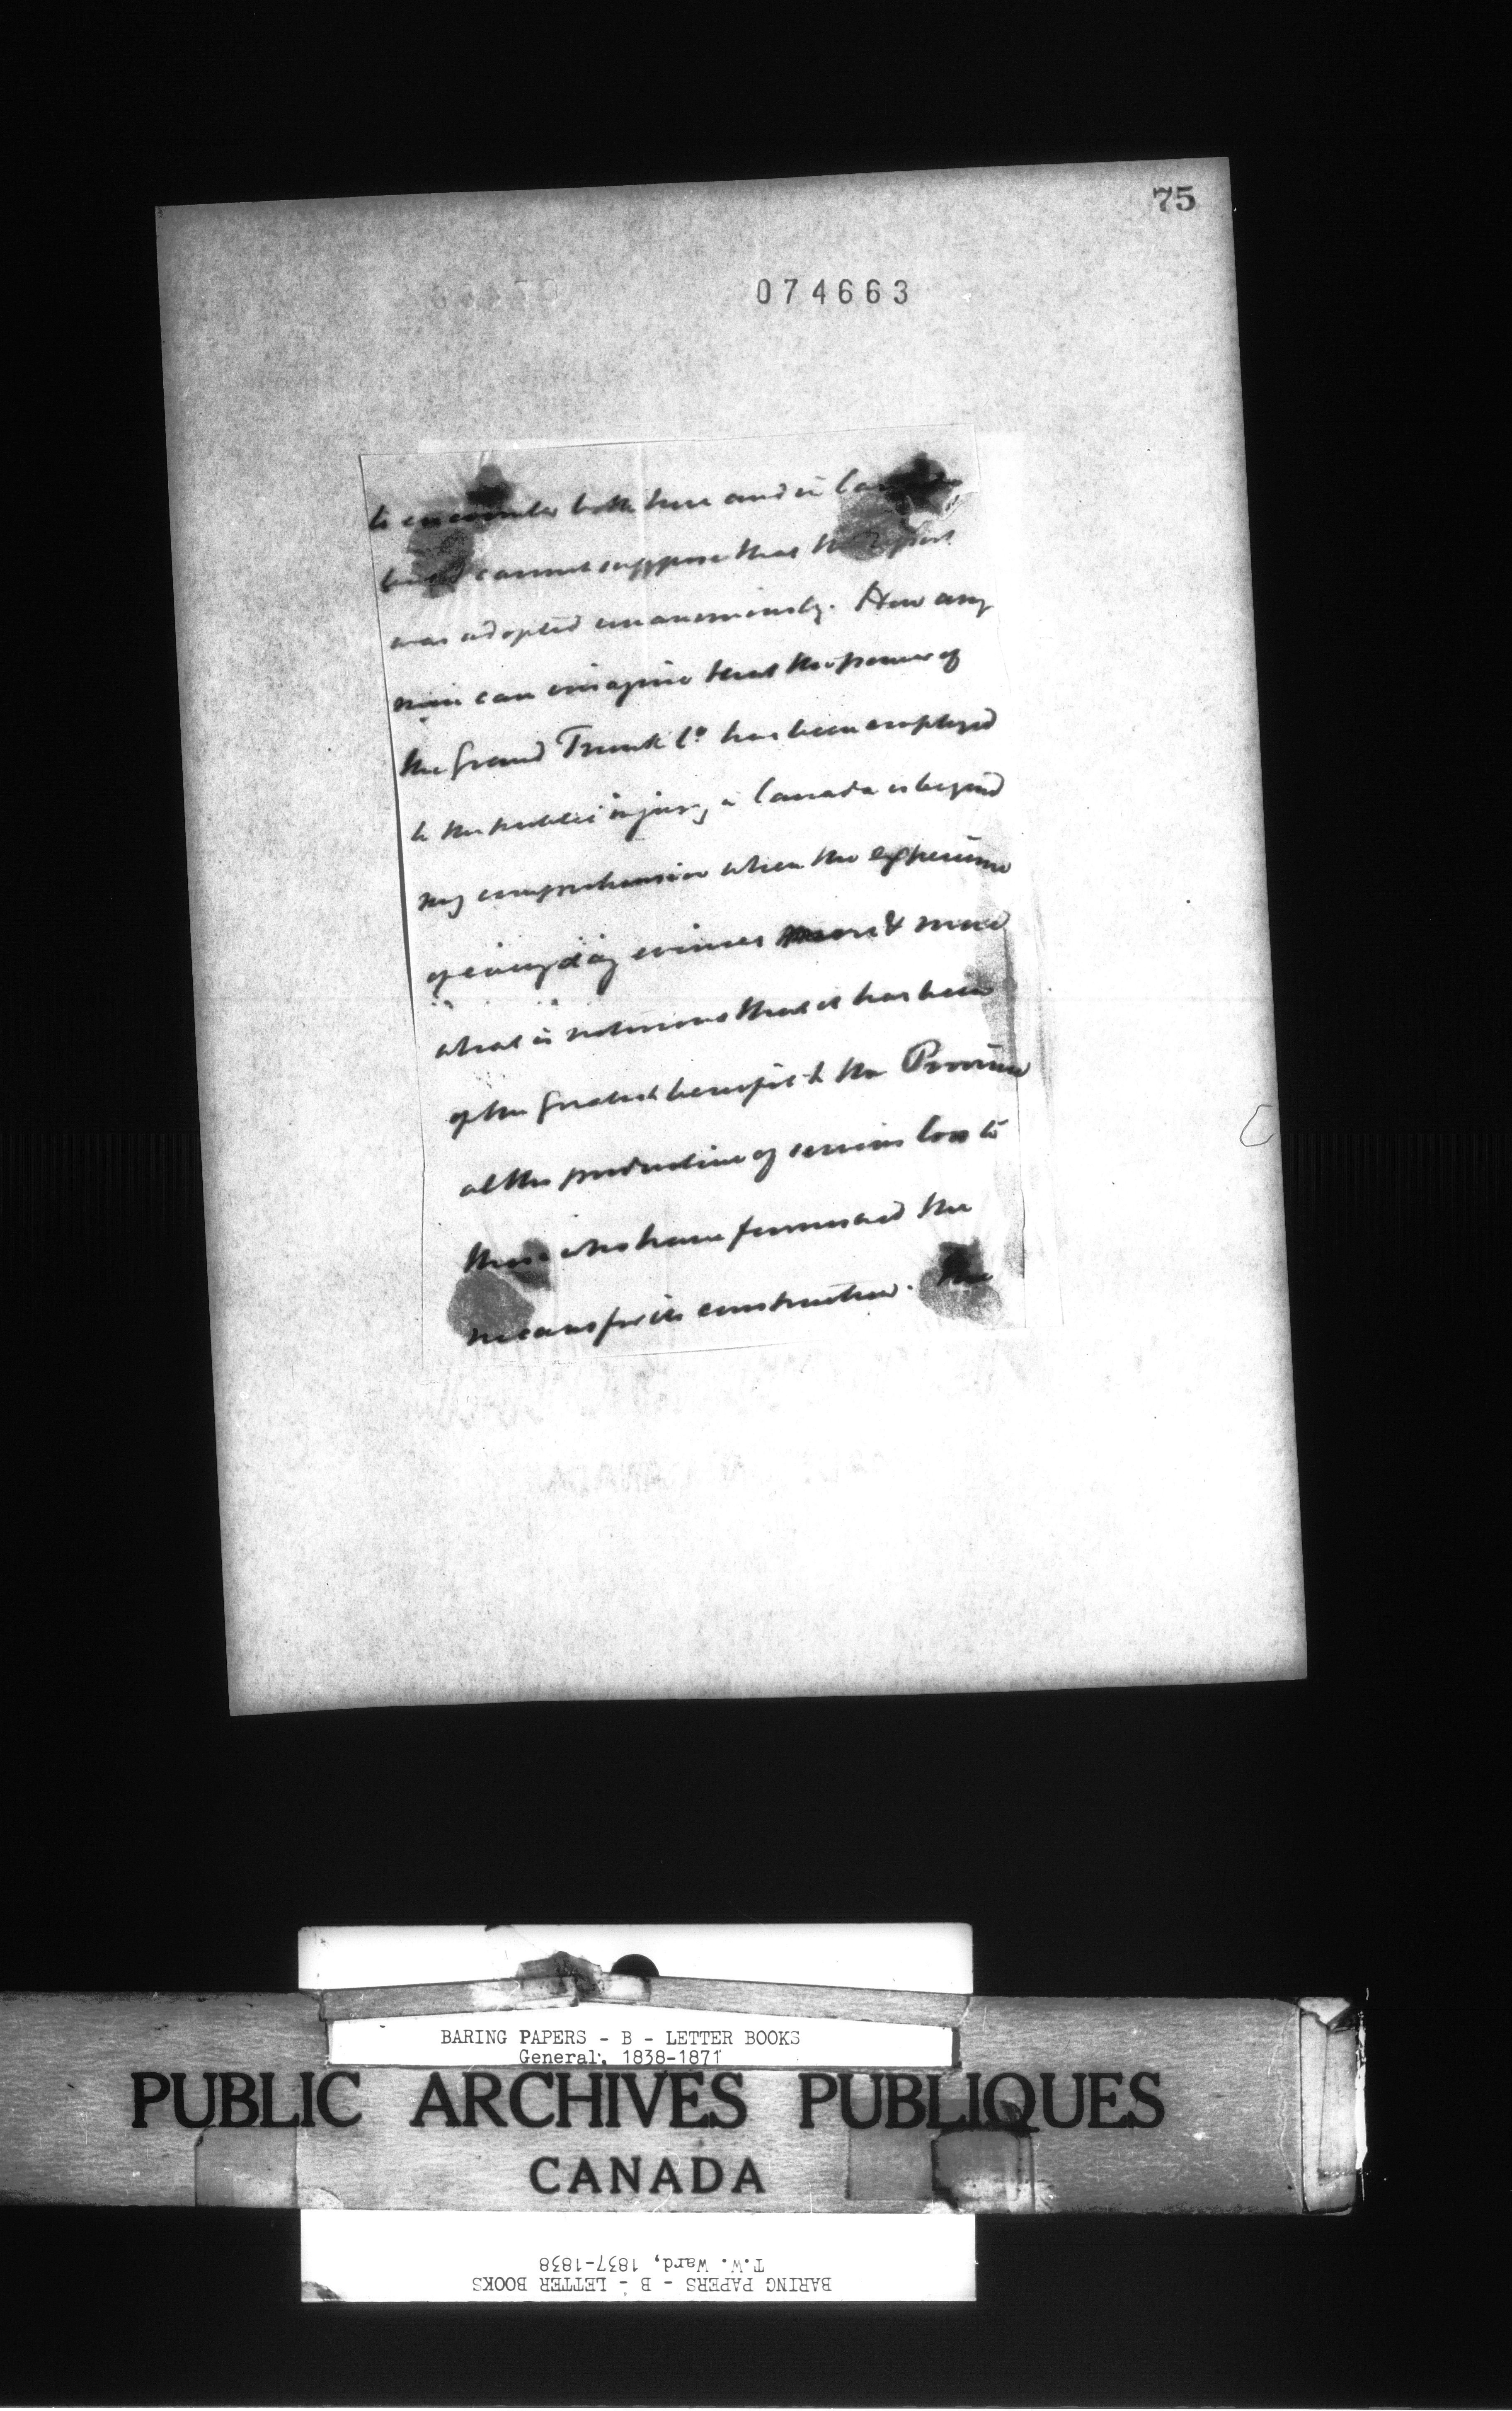 75
074663
to encounter both here and in Canada
but I cannot suppose that the Report
was adopted unanimously. How any
man can imagine that the power of
the Grand Trunk Co has been employed
to the public injury in Canada is beyond
my comprehension when the experience
of every day evinces more &
what is notorious that it has been
of the greatest benefit to the Province
altho productive of serious loss to
those who have furnished the
means for its construction. The
BARING PAPERS - B - LETTER BOOKS
General, 1838-1871
PUBLIC ARCHIVES PUBLIQUES
CANADA
T.W. Ward, 1837-1838
BARING PAPERS - B - LETTER BOOKS